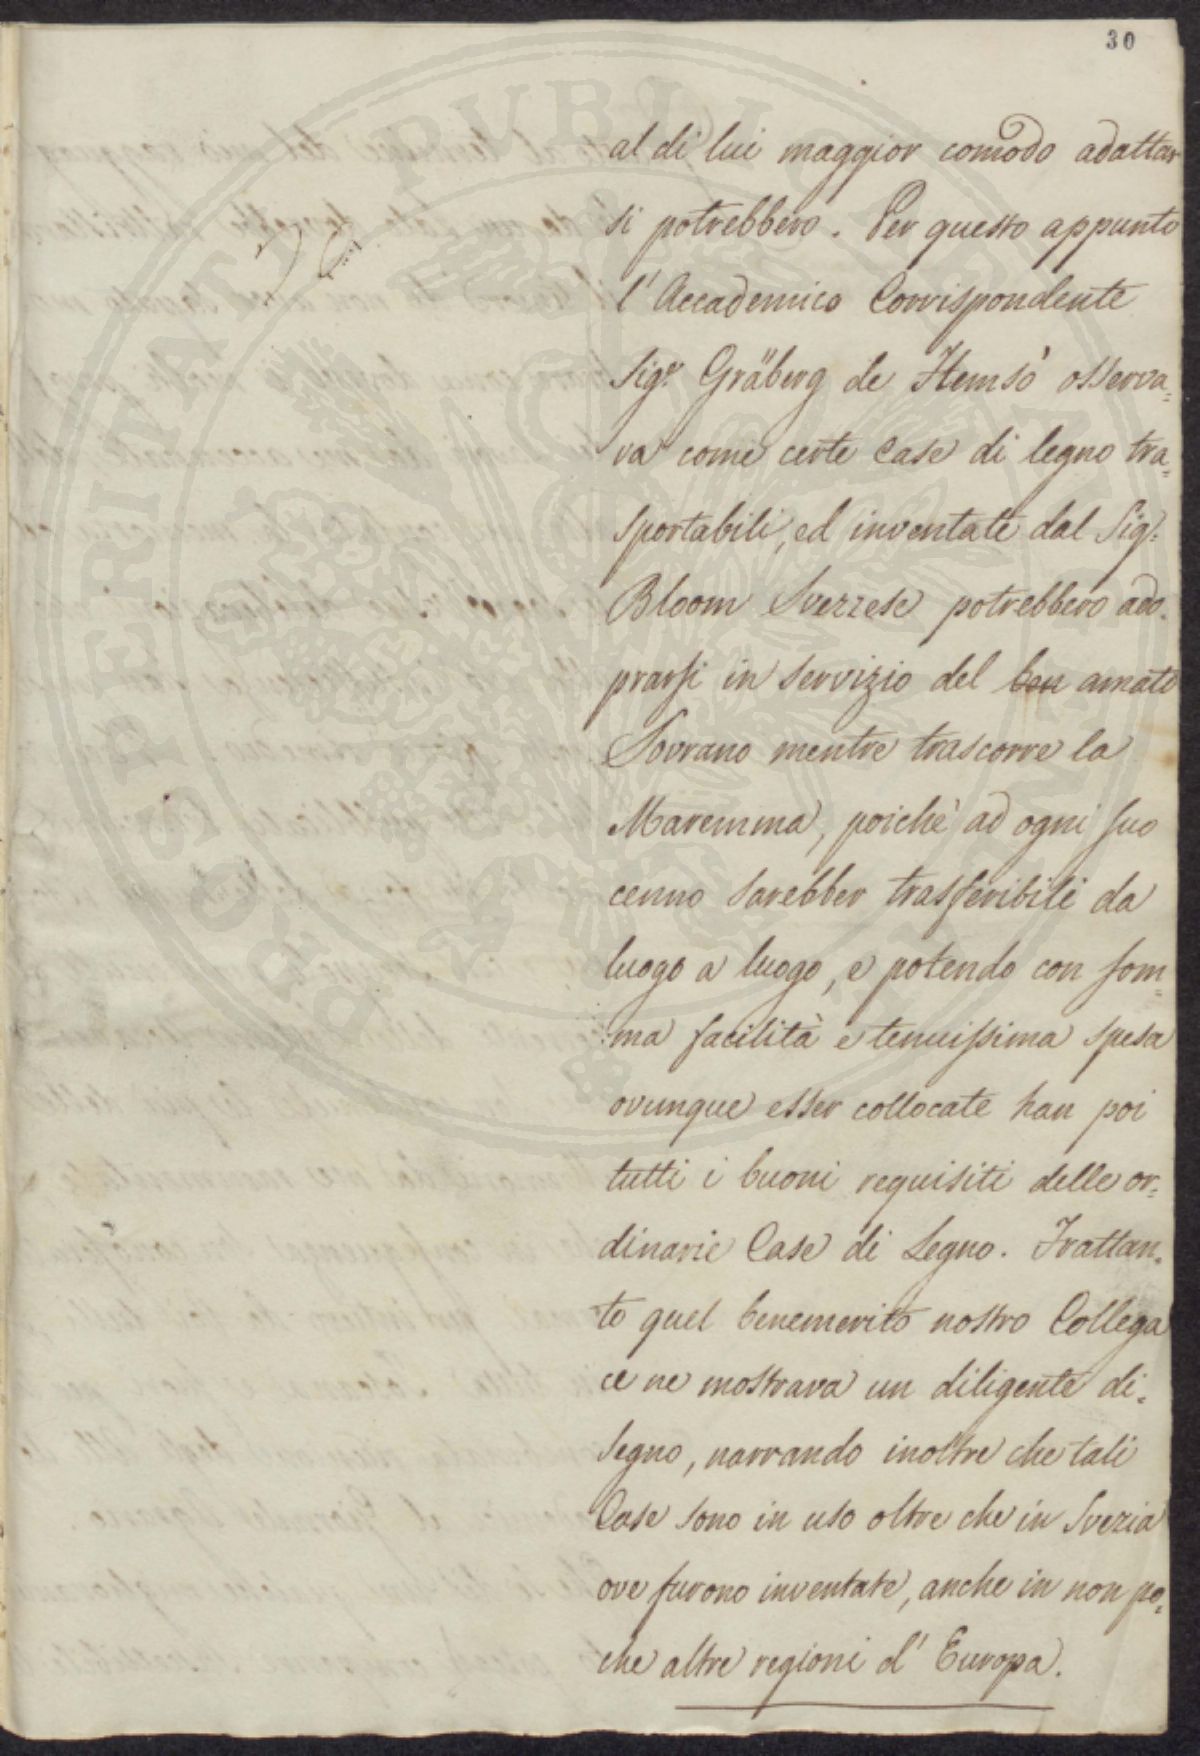 30
al di lui maggior comodo adattar
si potrebbero. Per questo appunto
l'Accademico Corrispondente
Sigr. Gräberg de Hemsö osserva=
va come certe Case di legno tra=
sportabili, ed inventate dal Sigr.
Bloom Svezzese potrebbero ado=
prarsi in servizio del ben amato
Sovrano mentre trascorre la
Maremma, poichè ad ogni suo
cenno sarebber trasferibili da
luogo a luogo, e potendo con som=
ma facilità e tenuissima spesa
ovunque esser collocate han poi
tutti i buoni requisiti delle or=
dinarie Case di Legno. Frattan=
to quel benemerito nostro Collega
ce ne mostrava un diligente di=
segno, narrando inoltre che tali
Case sono in uso oltre che in Svezia
ove furono inventate, anche in non po=
che altre regioni d'Europa.
PROSPERITATI PUBLICAE